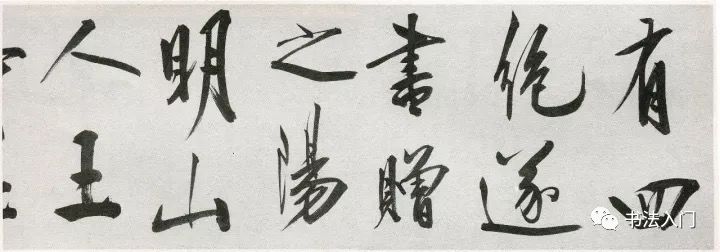 有四
絶遂
書贈
之陽
明山
人王
书法入门